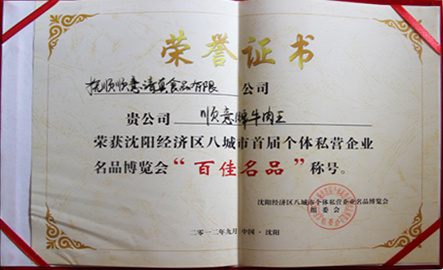 荣誉证书
抚顺顺意清真食品有限公司
贵公司 顺意牌牛肉王
荣获沈阳经济区八城市首届个体私营企业
名品博览会“百佳名品”称号。
沈阳经济区八城市个体私营企业名品博览会
组委会
二〇一二年九月 中国·沈阳